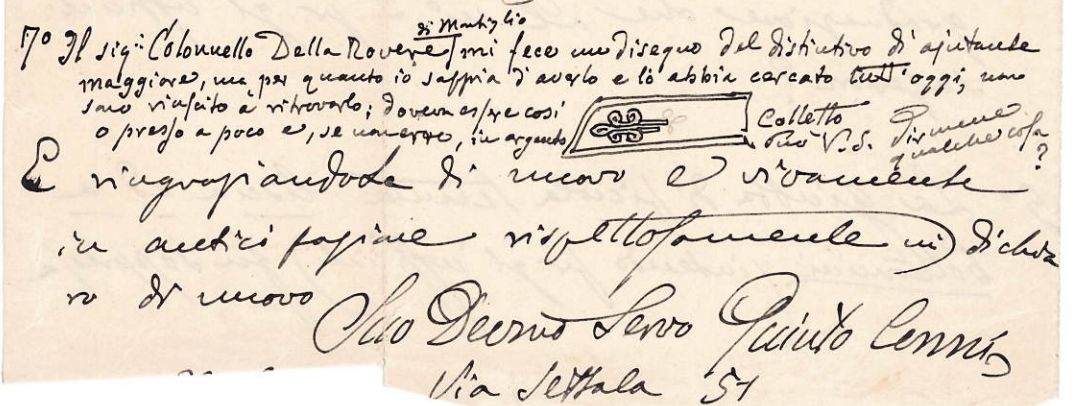 di Montiglio
7º Il sigr Colonnello Della Rovere mi fece un disegno del distintivo di ajutante
maggiore, ma per quanto io sappia d'averlo e lo abbia cercato tutt'oggi, non
sono riuscito à ritrovarlo; doveva essere così
o presso a poco e, se non erro, in argento
Colletto
Può V.S. dirmene
qualche cosa
?
E ringraziandola di nuovo e vivamente
in anticipazione rispettosamente mi dichia
ro di nuovo
Suo Devmo Servo Quinto Cenni
Via Settala 51